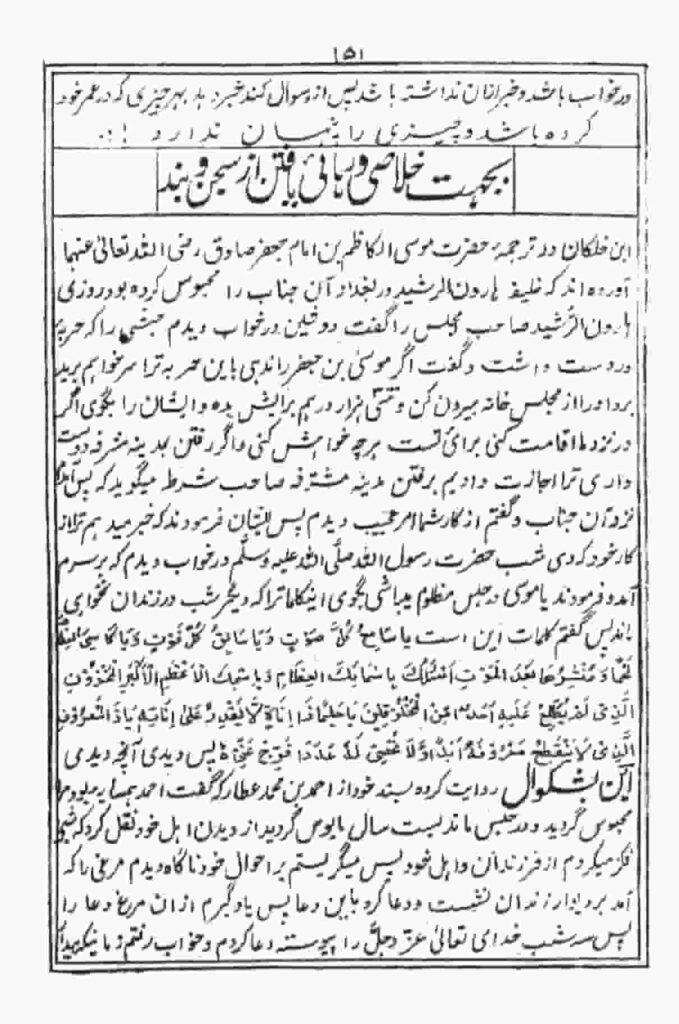 ۱۵۱
در خواب باشد و خبر ازان نداشته باشد پس از و سوال کند خبر دهد بهر چیزی که در عمر خود
کرده باشد و چیزی را پنهان ندارد
بجهت خلاصی و رهائی یافتن از سجن و بند
ابن خلکان در ترجمهٔ حضرت موسی الکاظم بن امام جعفر صادق رضی الله تعالیٰ عنهما
آورده اند که خلیفه هارون الرشید در بغداد آن جناب را محبوس کرده بود روزی
هارون الرشید صاحب مجلس را گفت دوشین در خواب دیدم حبشی را که حربه
در دست داشت و گفت اگر موسی بن جعفر را ندهی باین حربه ترا سر خواهم برید
برو او را از مجلس خانه بیرون کن و سی هزار درهم برایش بده و ایشان را بگوی اگر
در نزد ما اقامت کنی برائ تست هر چه خواهش کنی و اگر رفتن بمدینه مشرفه دوست
داری ترا اجازت دادیم برفتن مدینه مشرفه صاحب شرط میگوید که پس آمدم
نزد آن جناب و گفتم از کار شما امر عجیب دیدم پس ایشان فرمودند که خبر میدهم ترا از
کار خود که دی شب حضرت رسول الله صلی الله علیه وسلم در خواب دیدم که بر سرم
آمد و فرمودند یا موسی در حبس مظلوم میباشی بگوی اینکلمات را که دیگر شب در زندان نخواهی
ماند پس گفتم کلمات این است یا سامع کل صوت و یا سابق کل فوت و یا کاسی العظام
لحما و منشرها بعد الموت اسئلک باسمائک العظام و باسمک الاعظم الاکبر المخزون
الذی لم یطلع علیه احد من المخلوقین یا حلیما ذا اناة لا یقدر علی اناته یا ذا المعروف
الذی لا ینقطع معروفه ابدا و لا یحصی له عددا فرج عنی پس دیدی آنچه دیدی
ابن بشکوال روایت کرده بسند خود از احمد بن محمد عطار که گفت احمد همسایه میبود ما
محبوس گردید و در حبس ماند بیست سال مایوس گردید از دیدن اهل خود نقل کرد که شبی
فکر میکردم از فرزندان و اهل خود پس میگریستم بر احوال خود ناگاه دیدم مرغی را که
آمد بر دیوار زندان نشست و دعا کرد باین دعا پس یاد گرم ازان مرغ دعا را
پس سه شب خدای تعالیٰ عز و جل را پیوسته دعا کردم و خواب رفتم زمانیکه بیدار